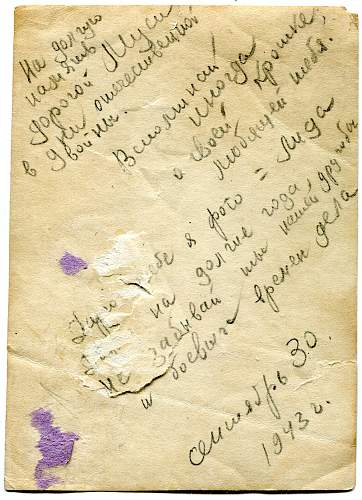 На долгую
память
дорогой Муси
в дни отечественной
войны.
Вспоминай
иногда
о своей крошке,
любящей тебя.
Лида
Дарю тебе я фото
на долгие года
не забывай ты нашей дружбы
и боевых времен дела
сентябрь 30.
1943 г.